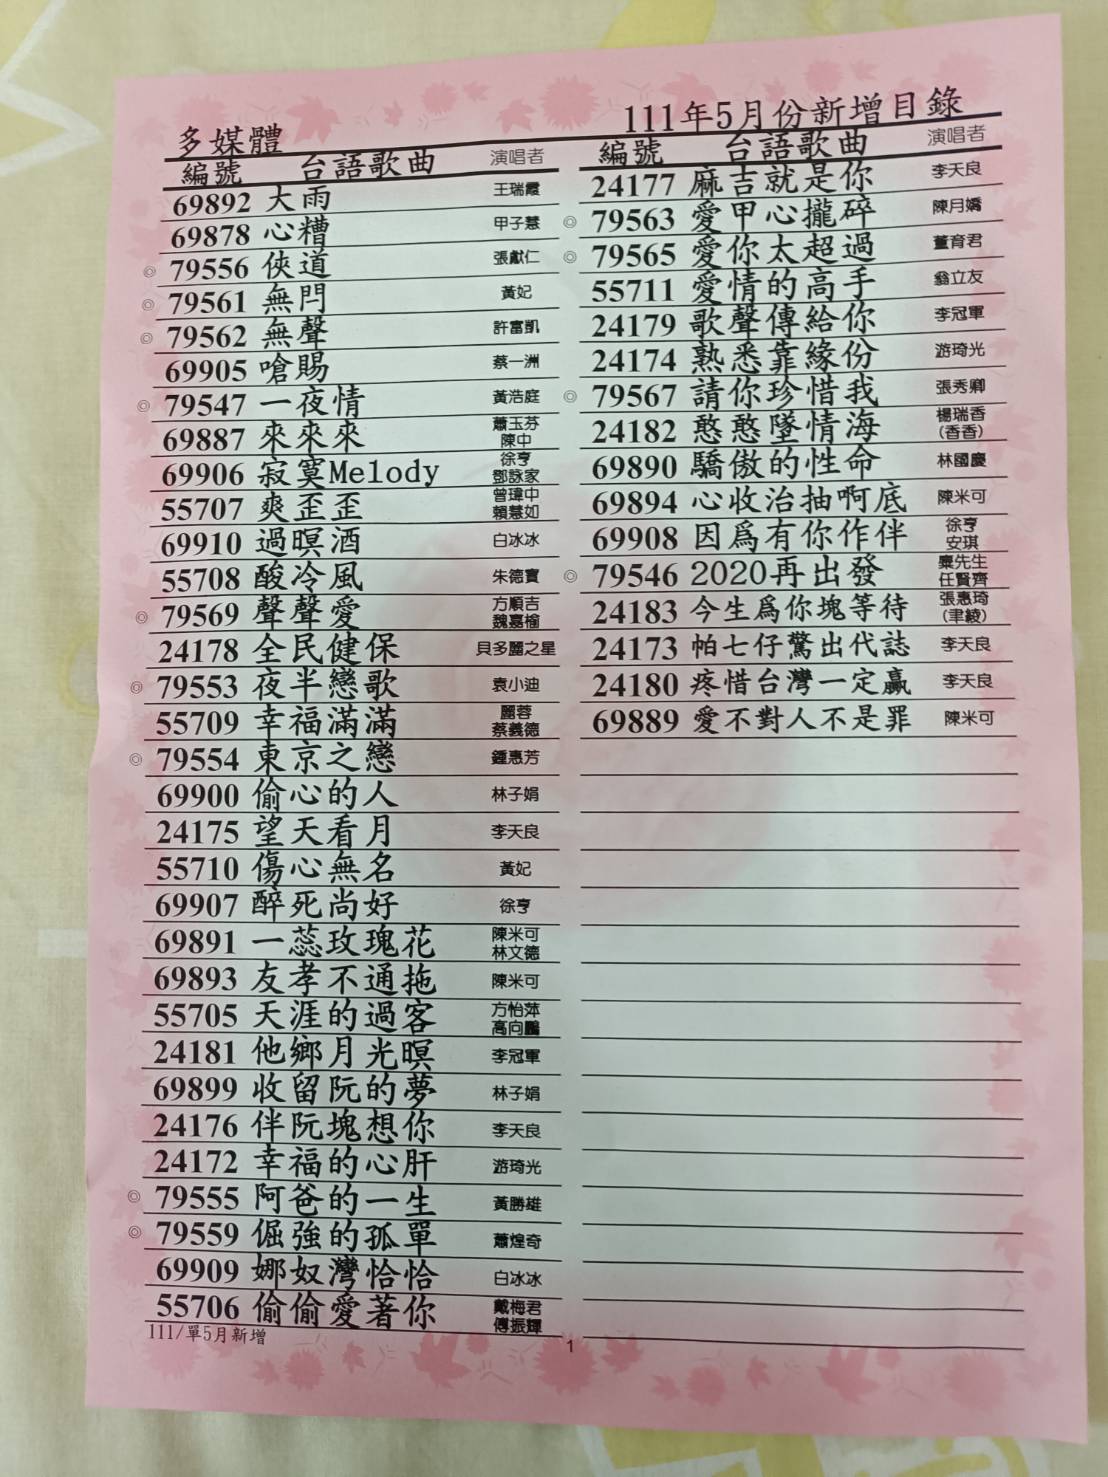 多媒體
111年5月份新增目錄
編號 台語歌曲 演唱者
69892 大雨 王瑞霞
69878 心糟 甲子慧
◎ 79556 俠道 張獻仁
◎ 79561 無閂 黃妃
◎ 79562 無聲 許富凱
69905 嗆賜 蔡一洲
◎ 79547 一夜情 黃浩庭
69887 來來來 蕭玉芬 陳中
69906 寂寞Melody 徐亨 鄧詠家
55707 爽歪歪 曾瑋中 賴慧如
69910 過暝酒 白冰冰
55708 酸冷風 朱德寶
◎ 79569 聲聲愛 方順吉 魏嘉榆
24178 全民健保 貝多麗之星
◎ 79553 夜半戀歌 袁小迪
55709 幸福滿滿 麗蓉 蔡義德
◎ 79554 東京之戀 鍾惠芳
69900 偷心的人 林子娟
24175 望天看月 李天良
55710 傷心無名 黃妃
69907 醉死尚好 徐亨
69891 一蕊玫瑰花 陳米可 林文德
69893 友孝不通拖 陳米可
55705 天涯的過客 方怡萍 高向鵬
24181 他鄉月光暝 李冠軍
69899 收留阮的夢 林子娟
24176 伴阮塊想你 李天良
24172 幸福的心肝 游琦光
◎ 79555 阿爸的一生 黃勝雄
◎ 79559 倔強的孤單 蕭煌奇
69909 娜奴灣恰恰 白冰冰
55706 偷偷愛著你 戴梅君 傅振輝
編號 台語歌曲 演唱者
24177 麻吉就是你 李天良
◎ 79563 愛甲心攏碎 陳月嬌
◎ 79565 愛你太超過 董育君
55711 愛情的高手 翁立友
24179 歌聲傳給你 李冠軍
24174 熟悉靠緣份 游琦光
◎ 79567 請你珍惜我 張秀卿
24182 憨憨墜情海 楊瑞香 (香香)
69890 驕傲的性命 林國慶
69894 心收治抽啊底 陳米可
69908 因為有你作伴 徐亨 安琪
◎ 79546 2020再出發 麋先生 任賢齊
24183 今生為你塊等待 張惠琦 (聿綾)
24173 帕七仔驚出代誌 李天良
24180 疼惜台灣一定贏 李天良
69889 愛不對人不是罪 陳米可
111/單5月新增
1